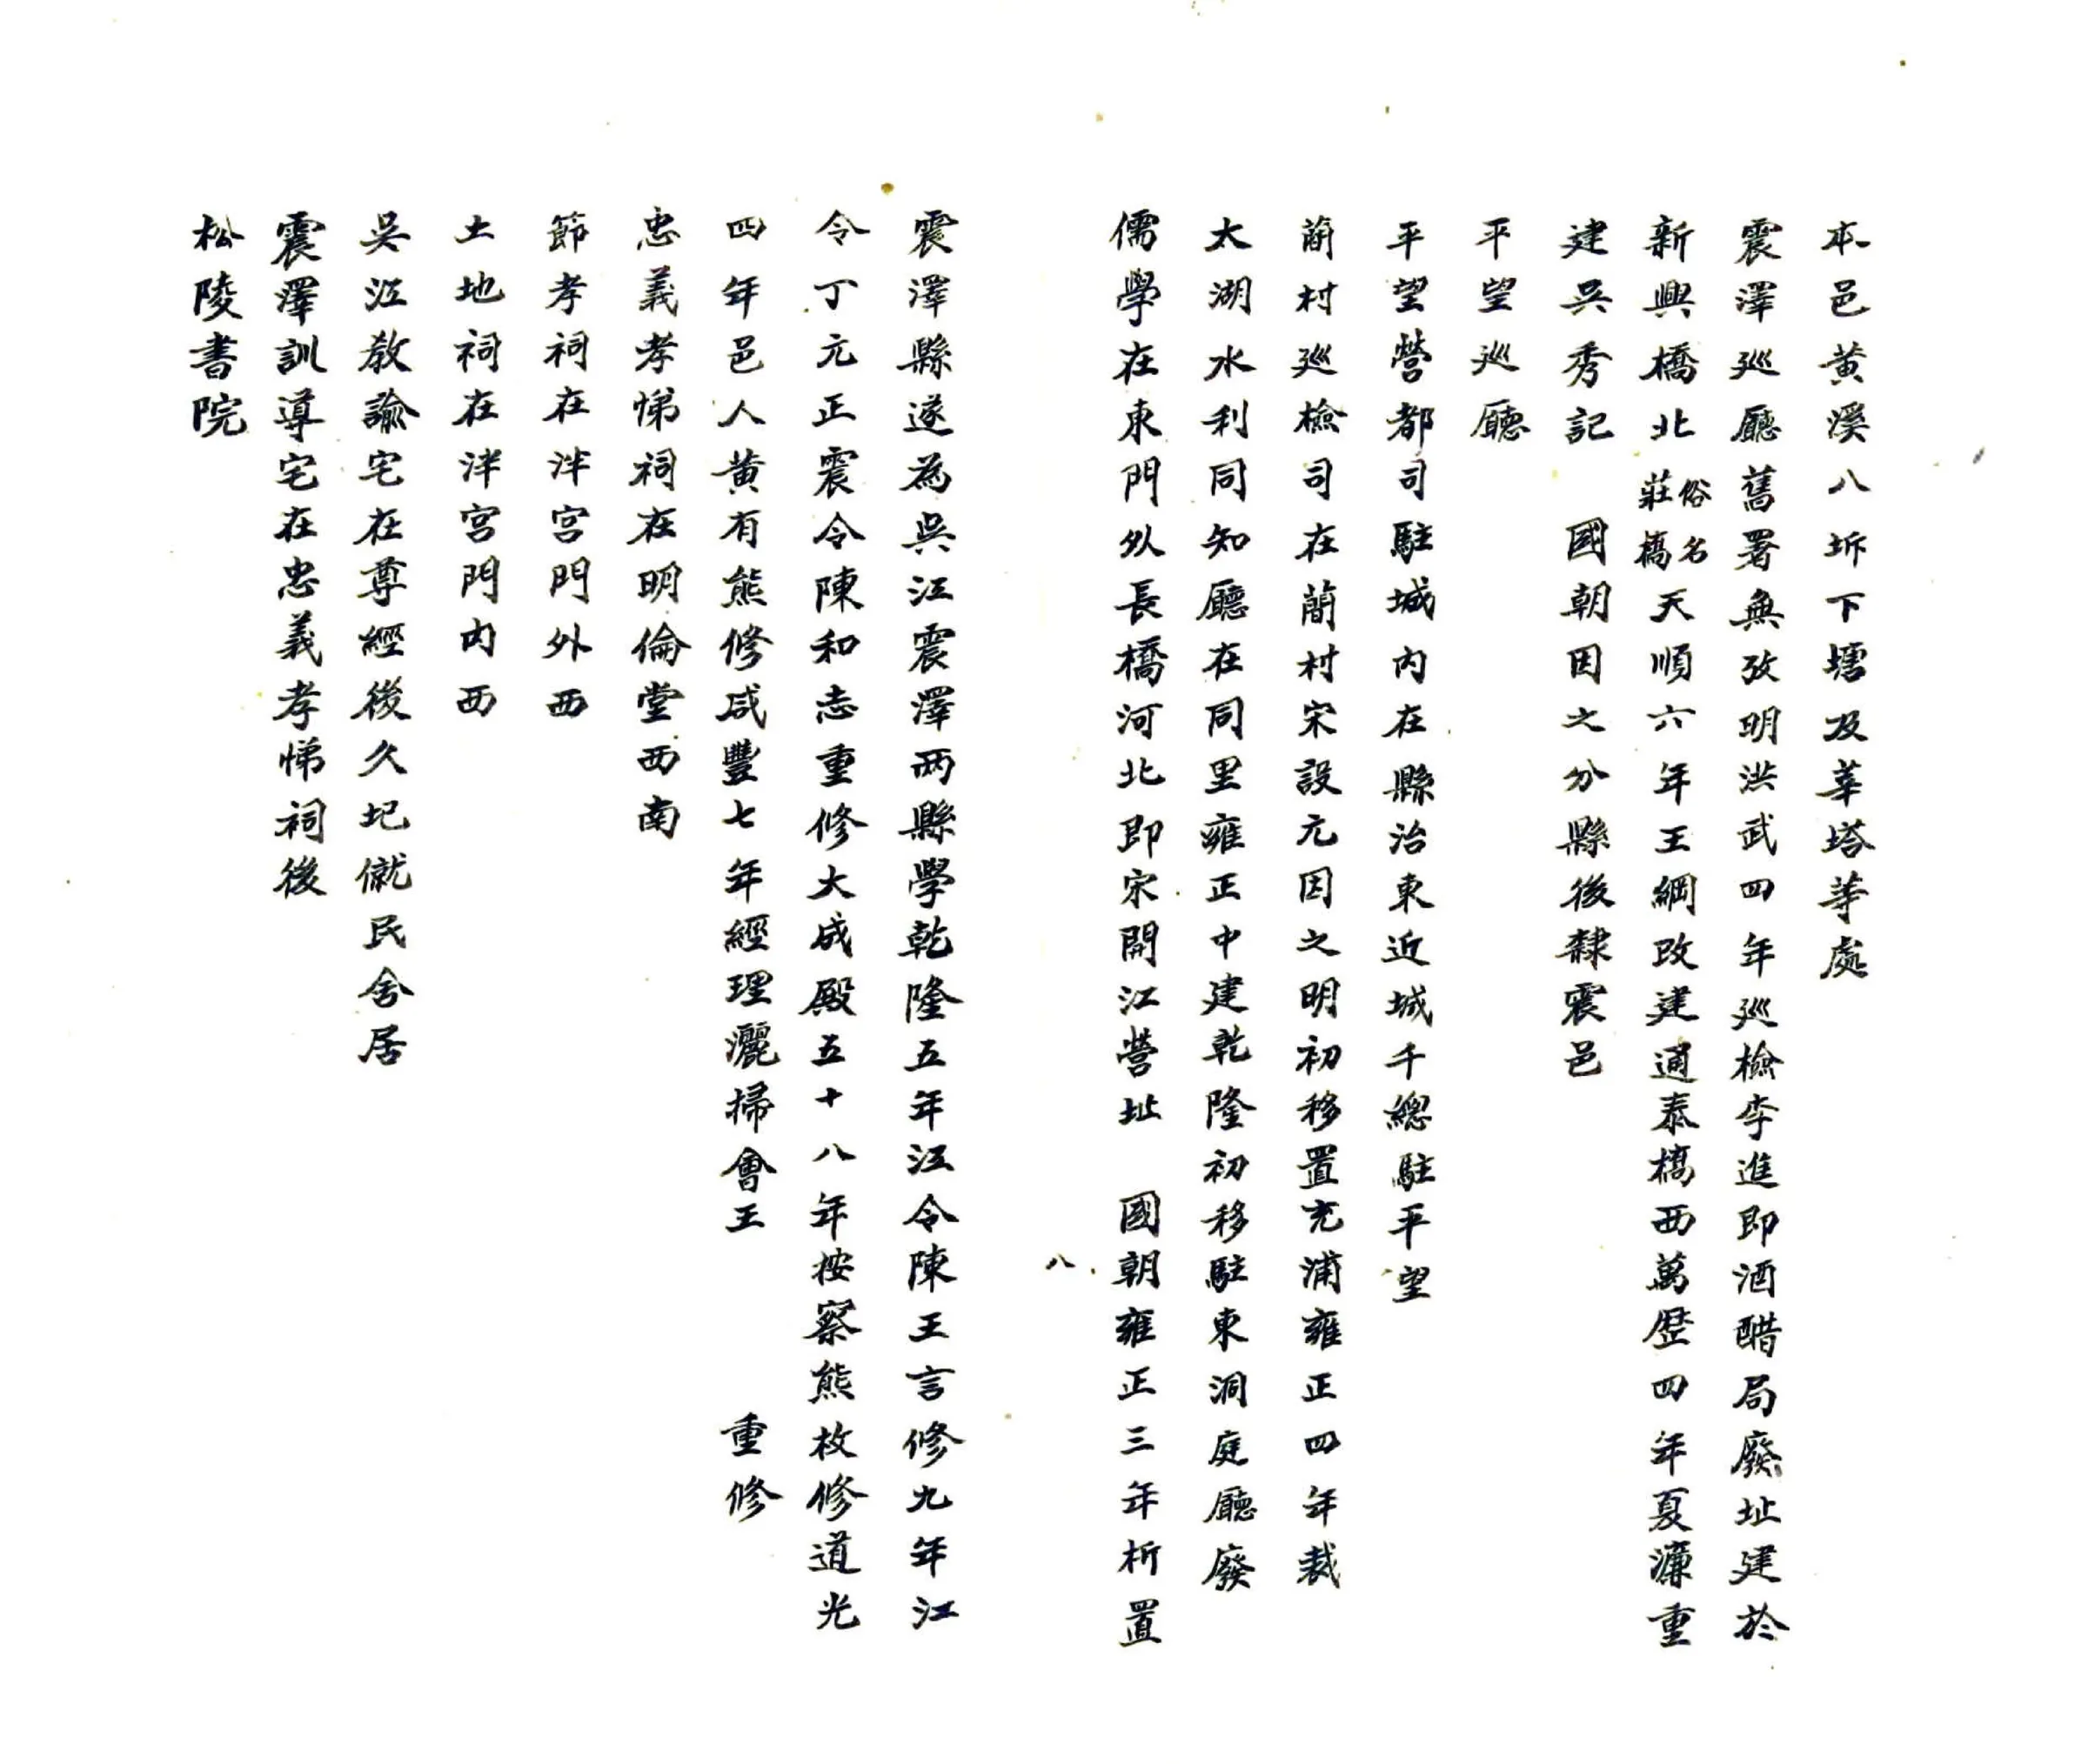 本邑黄溪八坼下塘及莘塔等處
震澤巡廳舊署無攷明洪武四年巡檢李進即酒醋局廢址建於
新興橋北俗名莊橋天順六年王綱改建通泰橋西萬歷四年夏濂重
建吳秀記　國朝因之分縣後隸震邑
平望巡廳
平望營都司駐城内在縣治東近城千總駐平望
蕑村巡檢司在蕑村宋設元因之明初移置充浦雍正四年裁
太湖水利同知廳在同里雍正中建乾隆初移駐東洞庭廳廢
儒學在東門外長橋河北即宋開江營址　國朝雍正三年析置
八
震澤縣遂為吳江震澤兩縣學乾隆五年江令陳王言修九年江
令丁元正震令陳和志重修大成殿五十八年按察熊枚修道光
四年邑人黄有熊修咸豐七年經理灑掃會王　重修
忠義孝悌祠在明倫堂西南
節孝祠在泮宮門外西
土地祠在泮宮門内西
吳江教諭宅在尊經後久圮僦民舍居
震澤訓導宅在忠義孝悌祠後
松陵書院